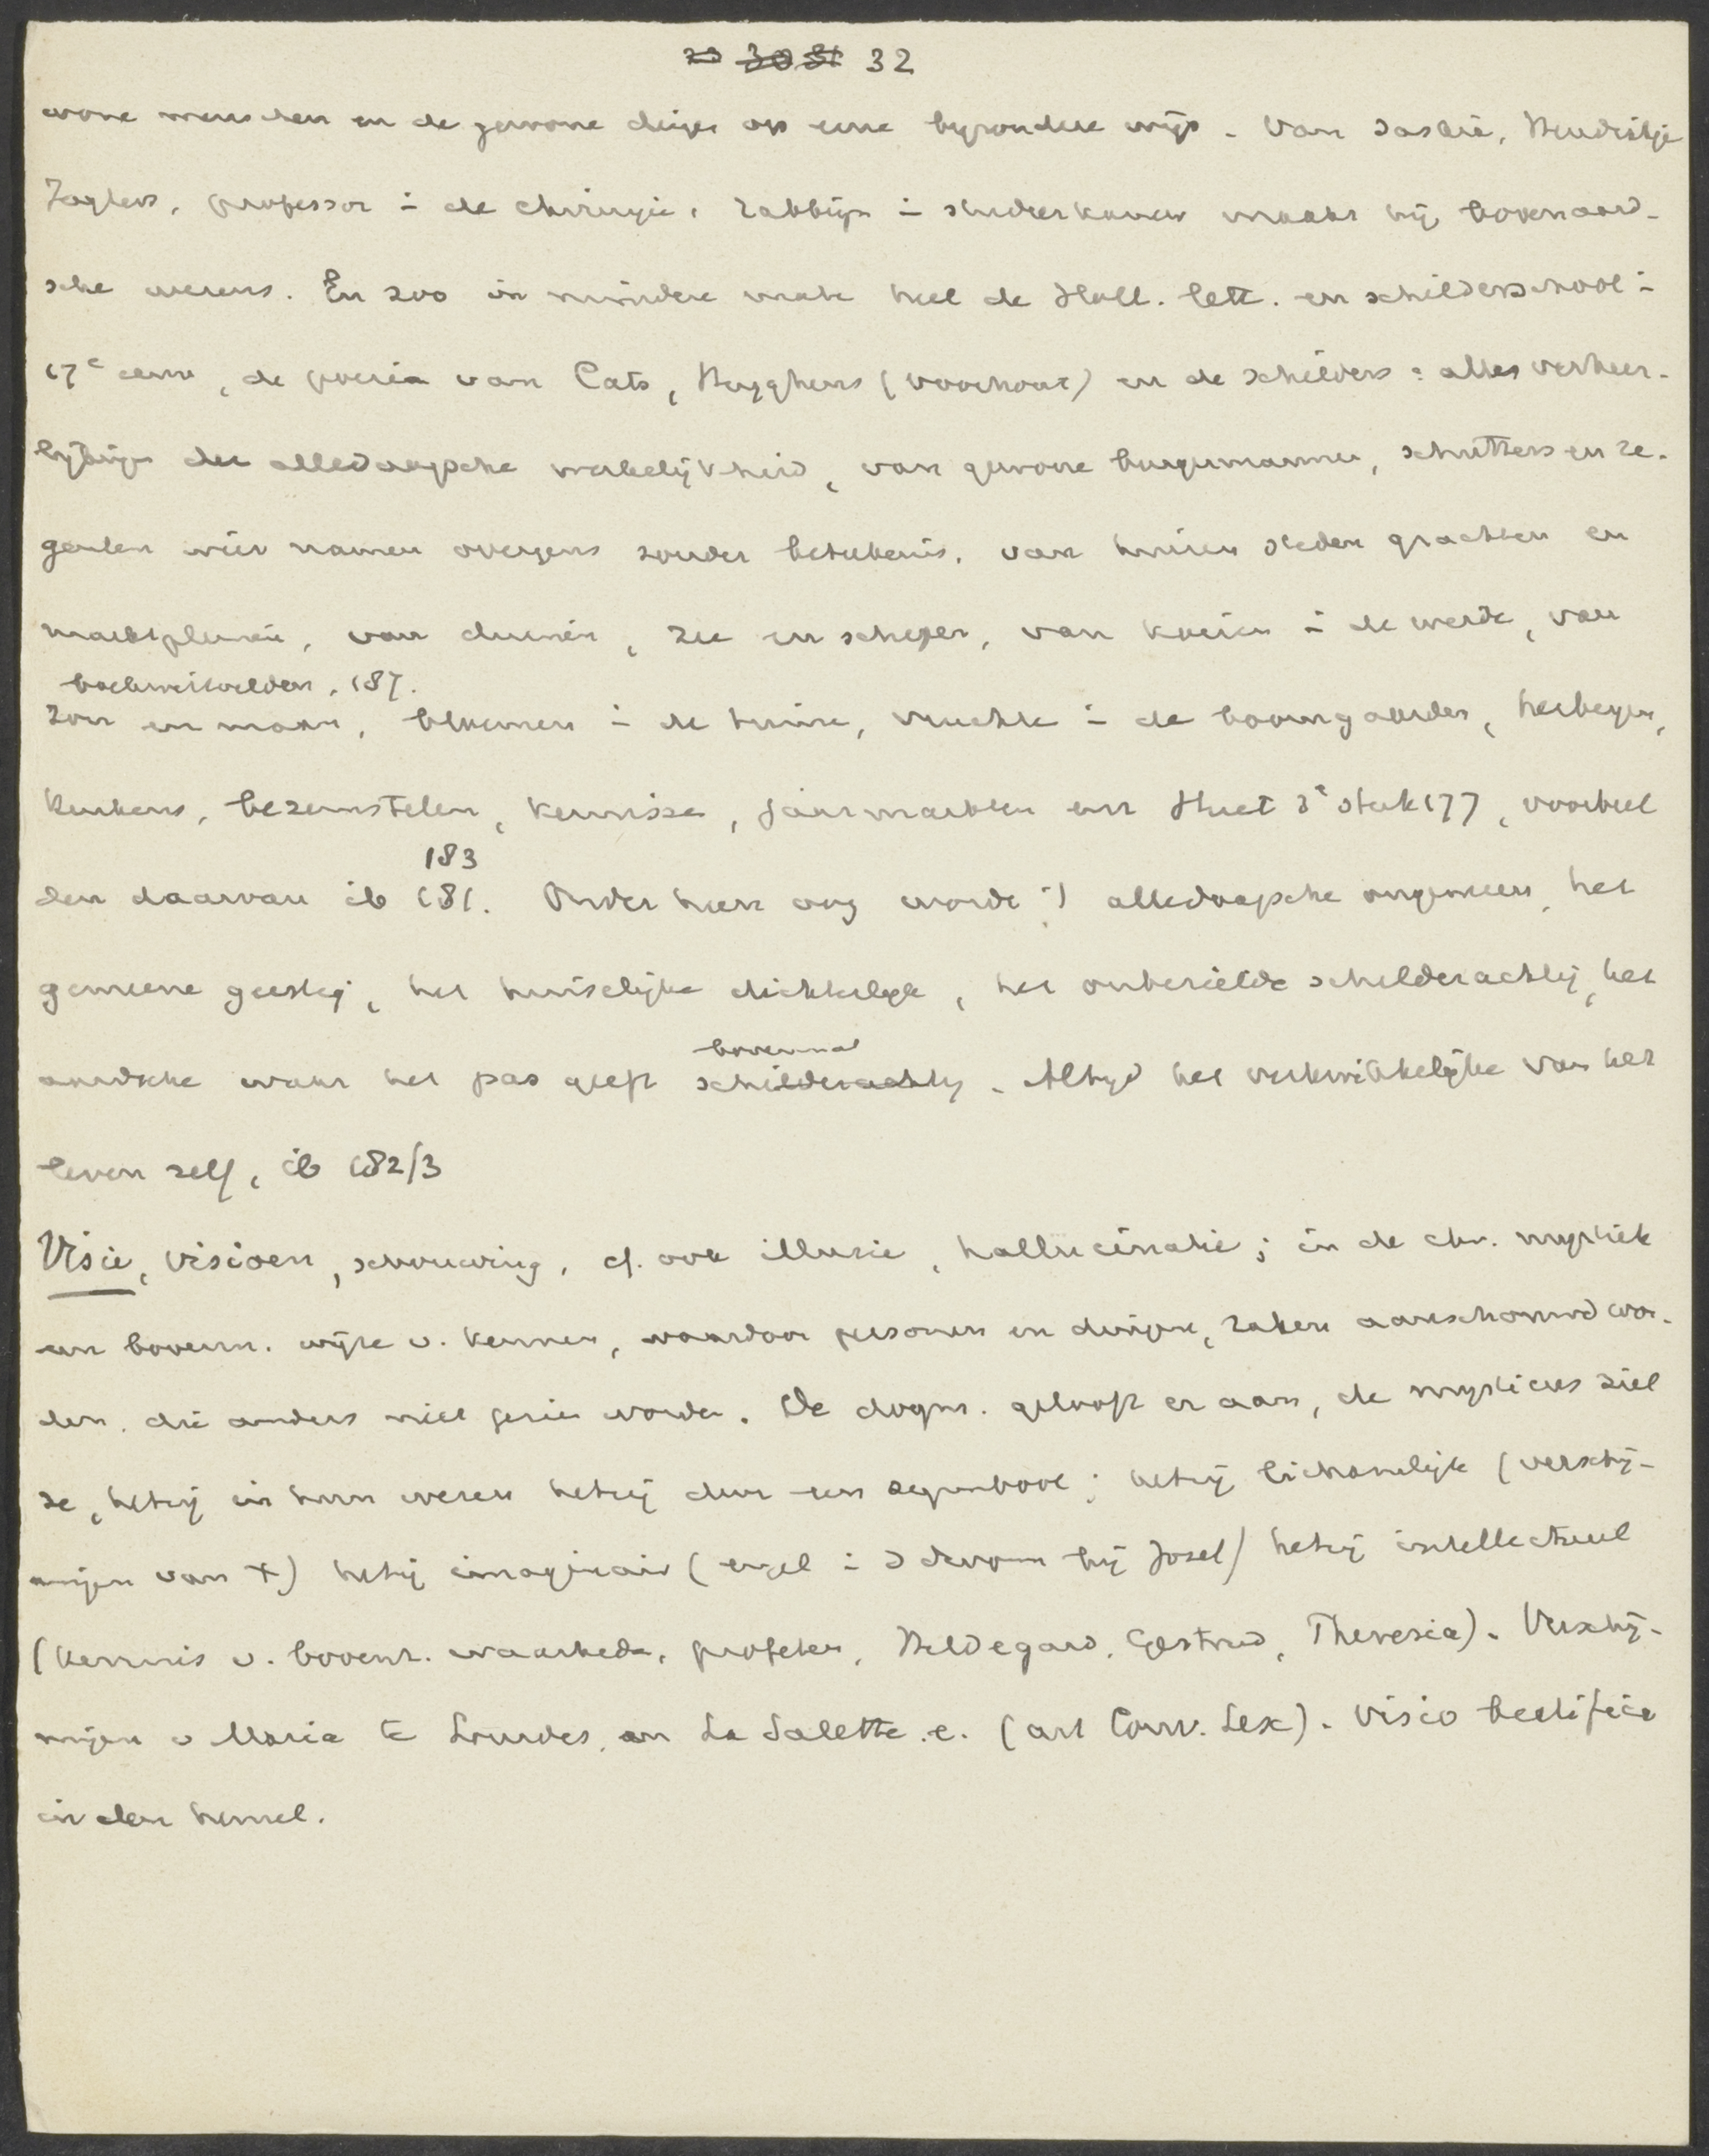 ~~29~~ ~~30~~ ~~31~~ 32
wone menschen en de gewone dingen op eene byzondere wijs. Van Saskia, Hendrikje
Jaghers, professor i de chirurgie, rabbijn i studeerkamer maakt hij bovenaard-
sche wezens. En zoo in mindere mate heel de Holl. lett. en schilderschool i
17e eeuw, de poezie van Cats, Huyghens (voorhout) en de schilders: alles verheer-
lijking der alledaagsche werkelijkheid, van gewone burgermannen, schutters en re-
genten wier namen overigens zonder betekenis, van huizen steden grachten en
marktpleinen, van duinen, zee en schepen, van koeien i de weide, van
boekweitvelden, 187.
zon en maan, bloemen i de tuin, vruchten i de boomgaarden, herbergen,
keukens, bezemstelen, kermissen, jaarmarkten enz Huet 3e stuk 177, voorbeel
183
den daarvan ib 181. Onder hun oog worde 't alledaagsche ongemeen, het
gemeene geestig, het huiselijke dichterlyk, het onbezielde schilderachtig, het
aardsche waar het pas geeft bovennat ~~schilderachtig~~. Altyd het verkwikkelijke van het
leven zelf, ib 182/3
Visie, visioen, schouwing, cf. ook illusie, hallucinatie; in de chr. mystiek
een bovenn. wijze v. kennen, waardoor personen en dingen, zaken aanschouwd wor-
den, die anders niet gezien worden. De dogm. gelooft er aan, de mysticus ziet
ze, hetzij in hun wezen hetzij door een symbool; hetzij lichamelijk (verschij-
ningen van +) hetzij imaginair (engel i droom bij Jozef) hetzij intellectueel
(kennis v. bovenn. waarheden, profeten, Hildegard, Gertrud, Theresia). Verschij-
ningen v Maria te Lourdes, en La Salette. e. (art Conv. Lex). Visio beatifica
in den hemel.